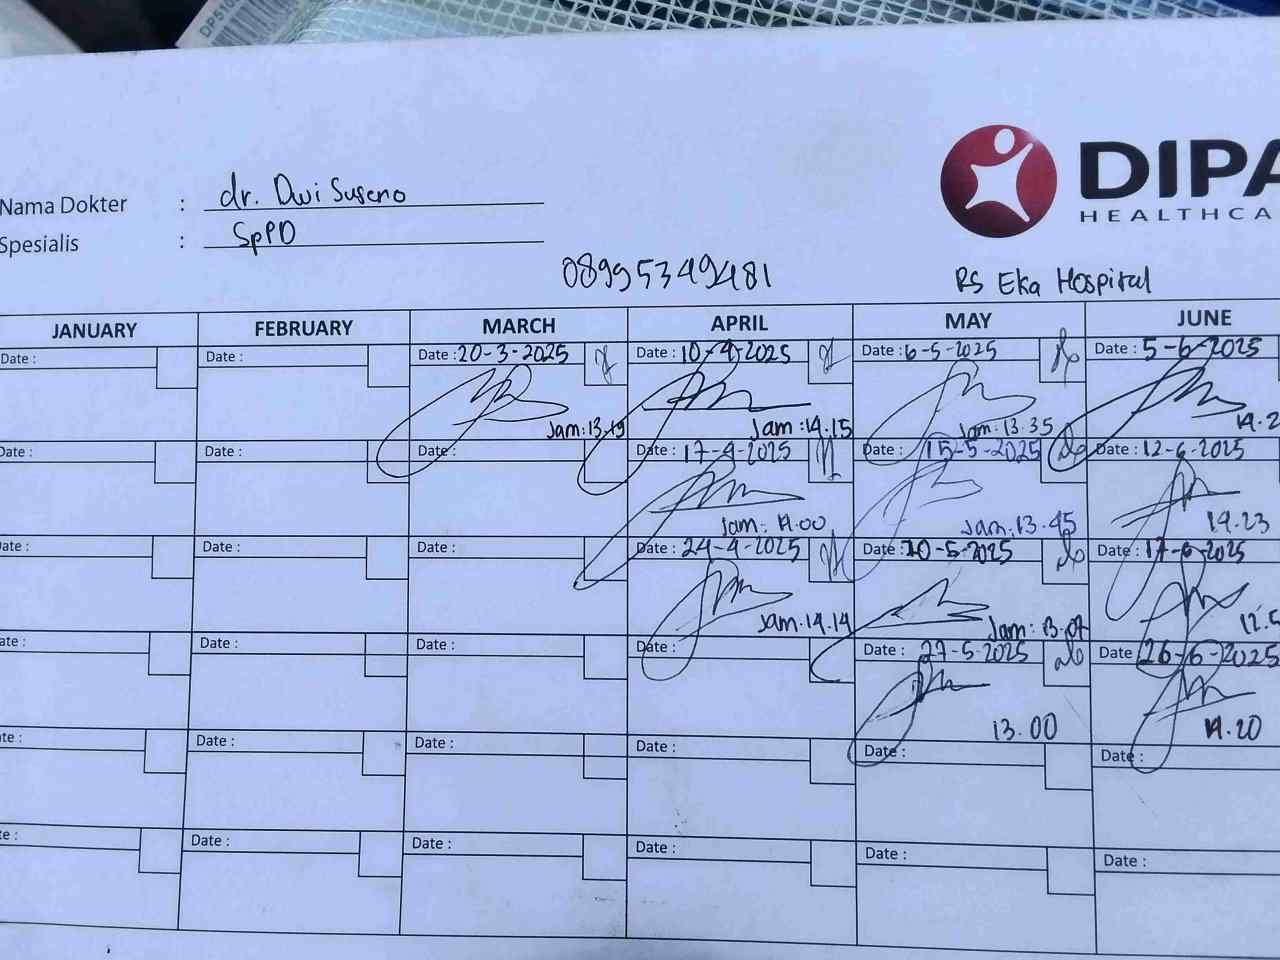 DP510
DIPA
HEALTHCA
Nama Dokter : dr. Dwi Suseno
Spesialis : SpPD
08995349481 RS Eka Hospital
JANUARY FEBRUARY MARCH APRIL MAY JUNE
Date : Date : Date : 20-3-2025 Date : 10-4-2025 Date : 6-5-2025 Date : 5-6-2025
Jam: 13.19 Jam : 14.15 Jam : 13.35 14.2
Date : Date : Date : Date : 17-4-2025 Date : 15-5-2025 Date : 12-6-2025
Jam: 14.00 Jam: 13.45 14.23
Date : Date : Date : Date : 24-4-2025 Date : 20-5-2025 Date : 17-6-2025
Jam: 14.14 Jam: 13.07 12.5
ate : Date : Date : Date : Date : 27-5-2025 Date : 26-6-2025
13.00 14.20
te : Date : Date : Date : Date : Date :
te : Date : Date : Date : Date : Date :